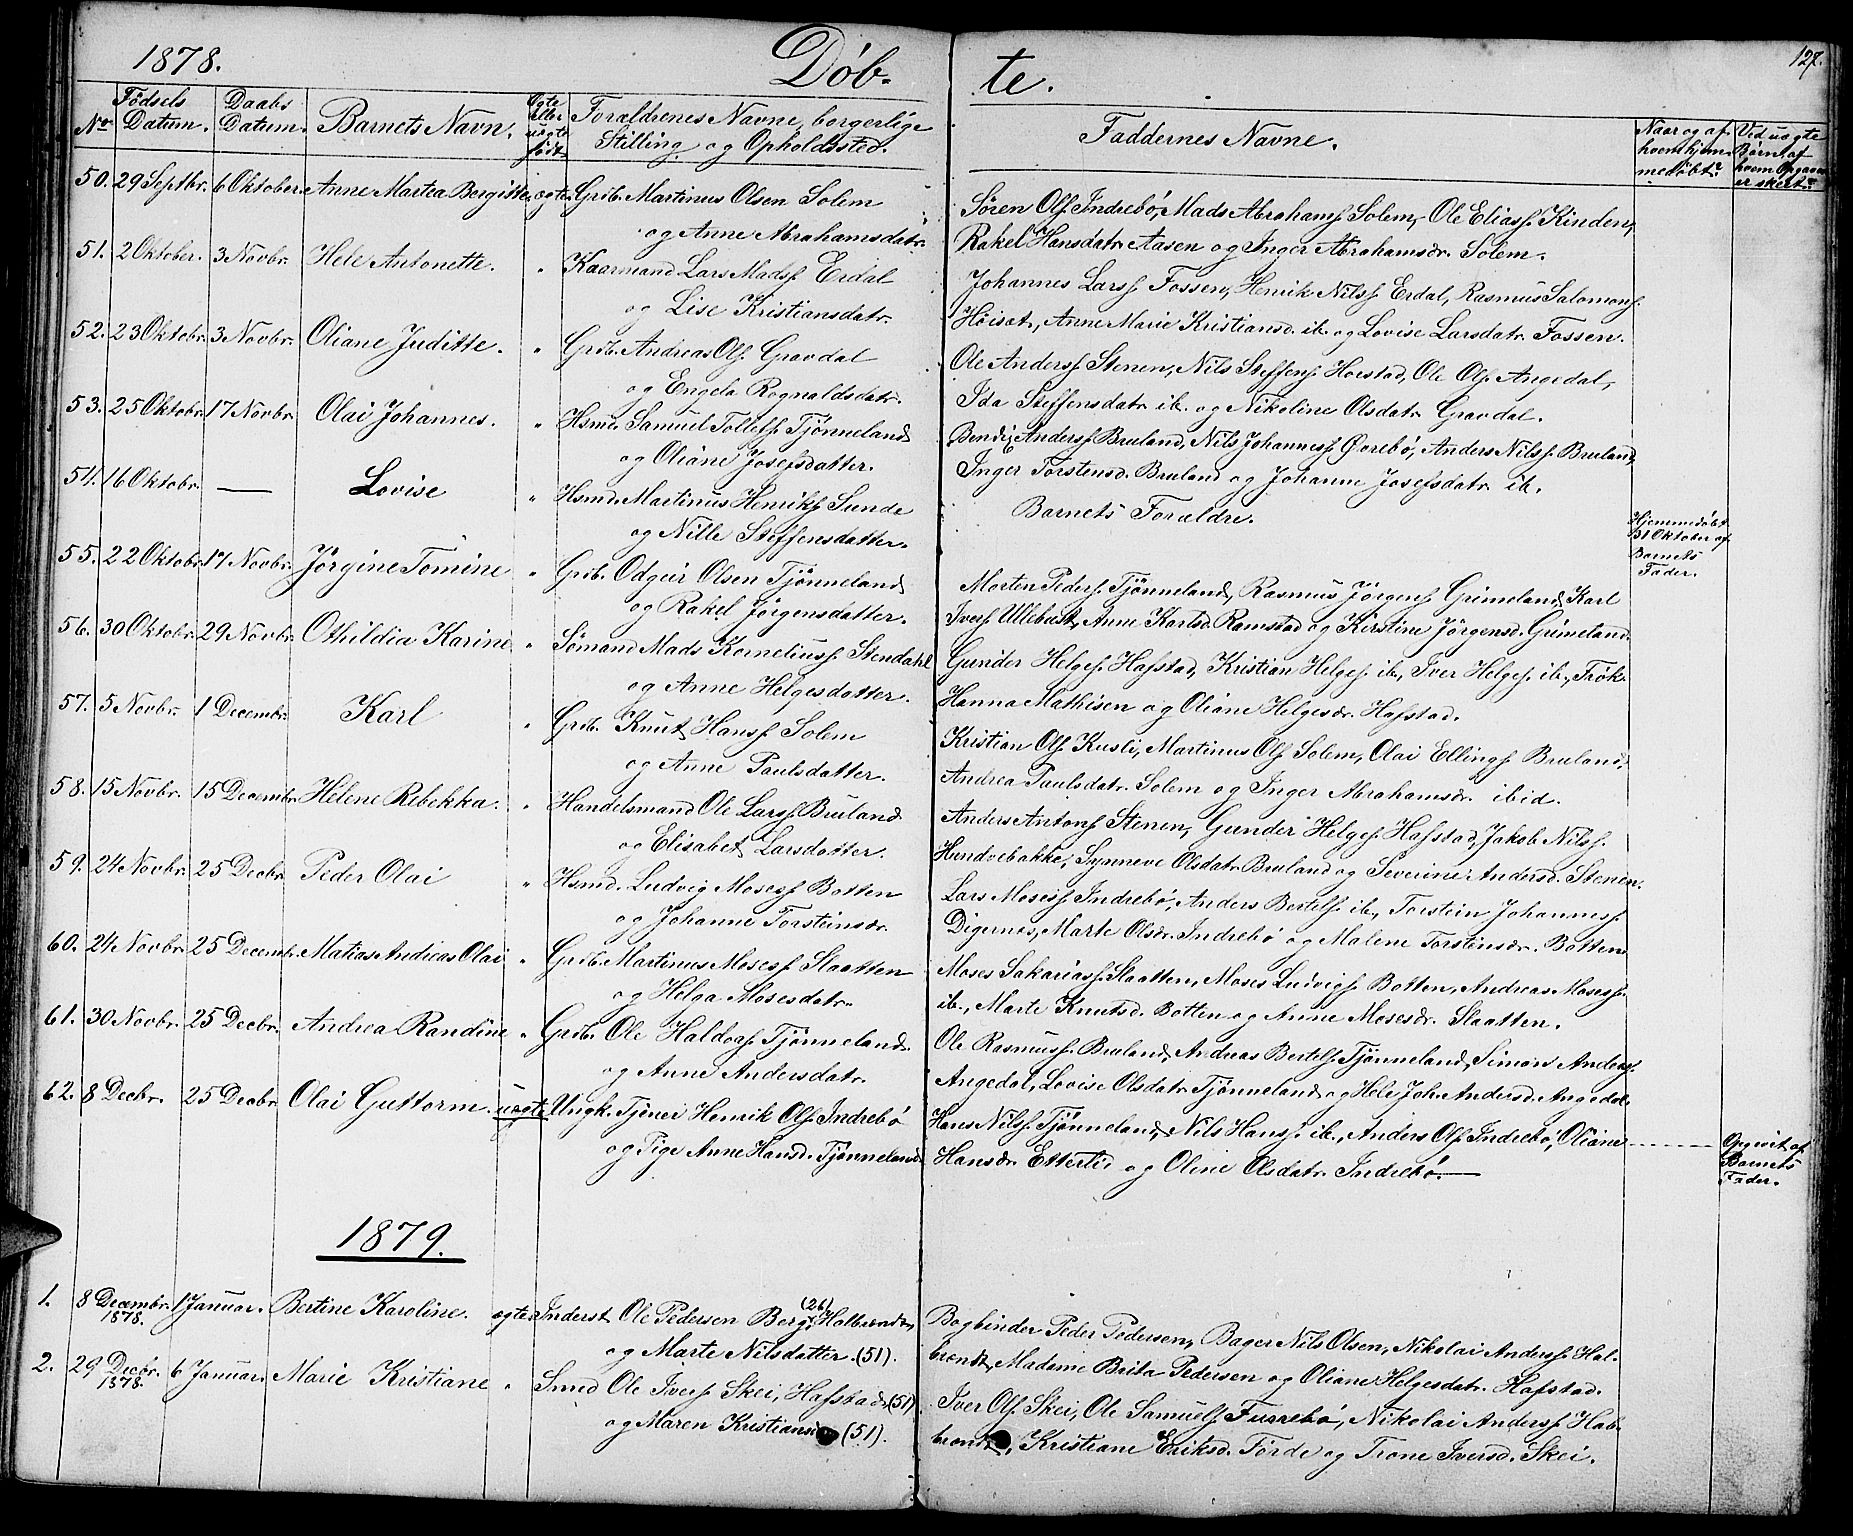 1878. Døb- te. 127.
No Fødsels Datum. Daabs Datum. Barnets Navn. Ægte eller uægte født Forældrenes Navne, borgerlige Stilling og Opholdssted. Faddernes Navne. Naar og af hvem hjemmedøbt? Ved uægte Børn, af hvem Opgaven er skeet?
50. 29 Septbr. 6 Oktober. Anne Martea Bergitte. ægte. Grdb. Martinus Olsen Solem
og Anne Abrahamsdatr.
Søren Ols. Indrebø, Mads Abrahams. Solem, Ole Elias. Kinden,
Rakel Hansdatr. Aasen og Inger Abrahamsdr. Solem.
51. 2 Oktober. 3 Novbr. Hele Antonette. " Kaarmand Lars Mads. Erdal
og Lise Kristiansdatr.
Johannes Lars. Fossen, Henrik Nils. Erdal, Rasmus Salomons.
Høisæt, Anne Marie Kristiansd. ib. og Lovise Larsdatr. Fossen.
52. 23 Oktobr. 3 Novbr. Oliane Juditte. " Grdb. Andreas Ols. Gravdal
og Engela Rognaldsdatr.
Ole Anders. Stenen, Nils Steffens. Horstad, Ole Ols. Angedal,
Ida Steffensdatr. ib. og Nikoline Olsdatr. Gravdal.
53. 25 Oktobr. 17 Novbr. Olai Johannes. " Hsmd. Samuel Tollefs. Tjønneland
og Oliane Josefsdatter.
Bendix Anders. Bruland, Nils Johannes. Gorebø, Anders Nils. Bruland,
Inger Torstensd. Bruland og Johanne Josefsdatr. ib.
54. 16 Oktobr. — Lovise " Hsmd. Martinus Henriks. Sunde
og Nille Steffensdatter.
Barnets Forældre.
Hjemmedøbt
31 Oktober af
Barnets
Fader.
55. 22 Oktobr. 17 Novbr. Jørgine Tomine " Grdb. Odgeir Olsen Tjønneland
og Rakel Jørgensdatter.
Morten Peders. Tjønneland, Rasmus Jørgens. Grimeland, Karl
Ivers. Ullebust, Anne Karlsd. Ramstad og Kirstine Jørgensd. Grimeland.
56. 30 Oktobr. 29 Novbr. Othildia Karine " Sømand Mads Kornelius. Stendahl
og Anne Helgesdatter.
Gunder Helges. Hafstad, Kristian Helges. ib., Iver Helges. ib., Frøk.
Hanna Mathisen og Oliane Helgesdr. Hafstad.
57. 5 Novbr. 1 Decembr. Karl " Grdb. Knut Hans. Solem
og Anne Paulsdatter.
Kristian Ols. Kusli, Martinus Ols. Solem, Olai Ellings. Bruland,
Andrea Paulsdatr. Solem og Inger Abrahamsdr. ibid.
58. 15 Novbr. 15 Decembr. Helene Rebekka. " Handelsmand Ole Lars. Bruland
og Elisabet Larsdatter.
Anders Antons. Stenen, Gunder Helges. Hafstad, Jakob Nils.
Hundvebakke, Synneve Olsdatr. Bruland og Severine Andersd. Stenen.
59. 24 Novbr. 25 Decbr. Peder Olai " Hsmd. Ludvig Moses. Botten
og Johanne Torsteinsdr.
Lars Moses. Indrebø, Anders Bertels. ib., Torstein Johannes.
Digernes, Marte Olsdr. Indrebø og Malene Torsteinsdr. Botten.
60. 24 Novbr. 25 Decembr. Matias Andreas Olai " Grdb. Martinus Moses. Slaatten
og Helga Mosesdatr.
Moses Sakarias. Slaatten, Moses Ludvigs. Botten, Andreas Moses.
ib., Marte Knutsd. Botten og Anne Mosesdr. Slaatten.
61. 30 Novbr. 25 Decbr. Andrea Randine " Grdb. Ole Haldors. Tjønneland
og Anne Andersdatr.
Ole Rasmus. Bruland, Andreas Bertels. Tjønneland, Simons Anders.
Angedal, Lovise Olsdatr. Tjønneland og Hele Joh. Andersd. Angedal.
62. 8 Decbr. 25 Decbr. Olai Guttorm. uægte Ungk. Tjener Henrik Ols. Indrebø
og Pige Anne Hansd. Tjønneland.
Hans Nils. Tjønneland, Nils Hans. ib., Anders Ols. Indrebø, Oliane
Hansdr. Etterlid og Oline Olsdatr. Indrebø.
Opgivet af
Barnets
Fader.
1879.
1. 8 Decembr. 1878. 1 Januar. Bertine Karoline. ægte Inderst Ole Pedersen Berg, Halbrendt, (26)
og Marte Nilsdatter. (51).
Bogbinder Peder Pedersen, Bager Nils Olsen, Nikolai Anders. Hal-
brendt, Madame Brita Pedersen og Oliane Helgesdatr. Hafstad.
2. 29 Decbr. 1878. 6 Januar. Marie Kristiane " Smed Ole Ivers. Skei, Hafstad (51)
og Maren Kristiansd. (51).
Iver Ols. Skei, Ole Samuels. Furrebø, Nikolai Anders. Hal-
brendt, Kristiane Eriksd. Førde og Trone Iversd. Skei.